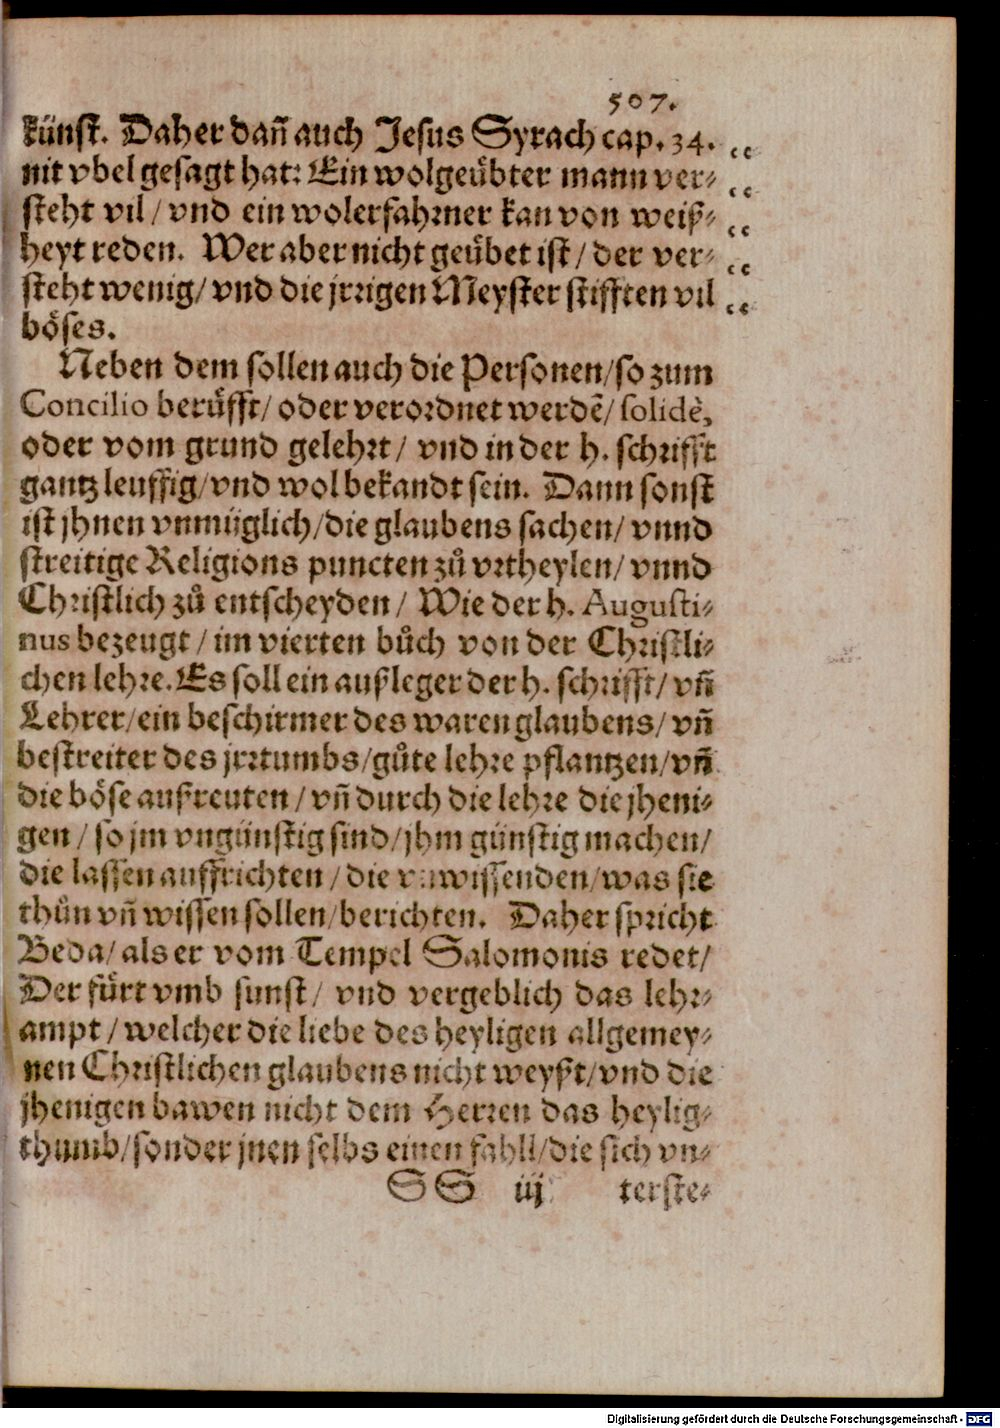 507.
künst. Daher dañ auch Jesus Syrach cap. 34.
nit vbel gesagt hat: Ein wolgeübter mann ver-
steht vil / vnd ein wolerfahrner kan von weiß-
heyt reden. Wer aber nicht geübet ist / der ver-
steht wenig / vnd die jrrigen Meyster stifften vil
böses.
Neben dem sollen auch die Personen / so zum
Concilio berüfft / oder verordnet werdẽ / solidè,
oder vom grund gelehrt / vnd in der h. schrifft
gantz leuffig / vnd wol bekandt sein. Dann sonst
ist jhnen vnmüglich / die glaubens sachen / vnnd
streitige Religions puncten zů vrtheylen / vnnd
Christlich zů entscheyden / Wie der h. Augusti-
nus bezeugt / im vierten bůch von der Christli-
chen lehre. Es soll ein außleger der h. schrifft / vñ
Lehrer / ein beschirmer des waren glaubens / vñ
bestreiter des jrrtumbs / gůte lehre pflantzen / vñ
die böse außreuten / vñ durch die lehre die jheni-
gen / so jm vngünstig sind / jhm günstig machen /
die lassen auffrichten / die vnwissenden / was sie
thůn vñ wissen sollen / berichten. Daher spricht
Beda / als er vom Tempel Salomonis redet /
Der fürt vmb sunst / vnd vergeblich das lehr-
ampt / welcher die liebe des heyligen allgemey-
nen Christlichen glaubens nicht weyßt / vnd die
jhenigen bawen nicht dem Herren das heylig-
thumb / sonder jnen selbs einen fahll / die sich vn-
SS iij terste-